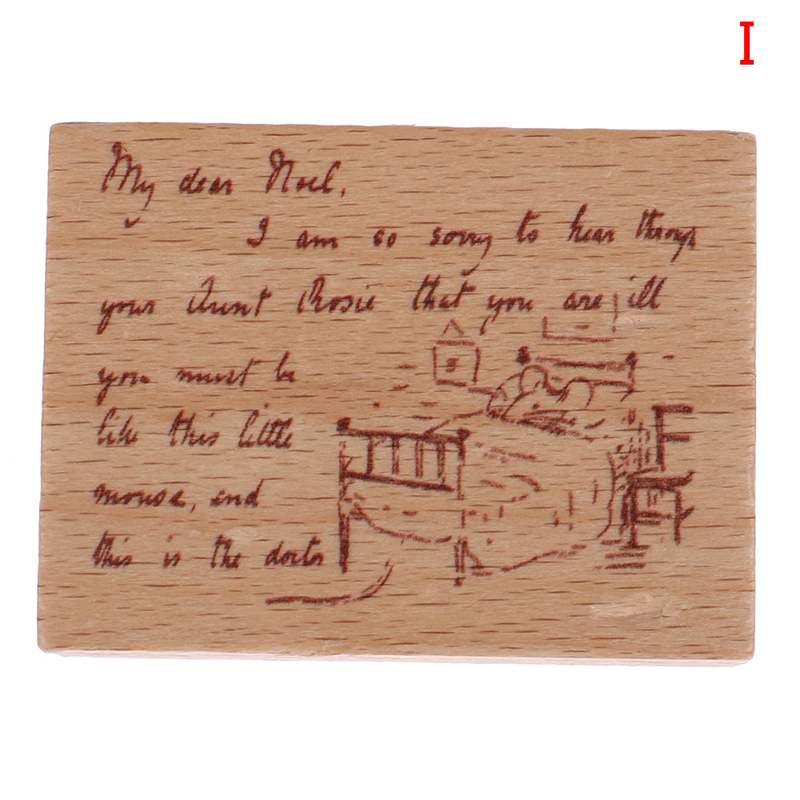 I
My dear Noel,
I am so sorry to hear through
your Aunt Rosie that you are ill
you must be
like this little
mouse, and
this is the doctor